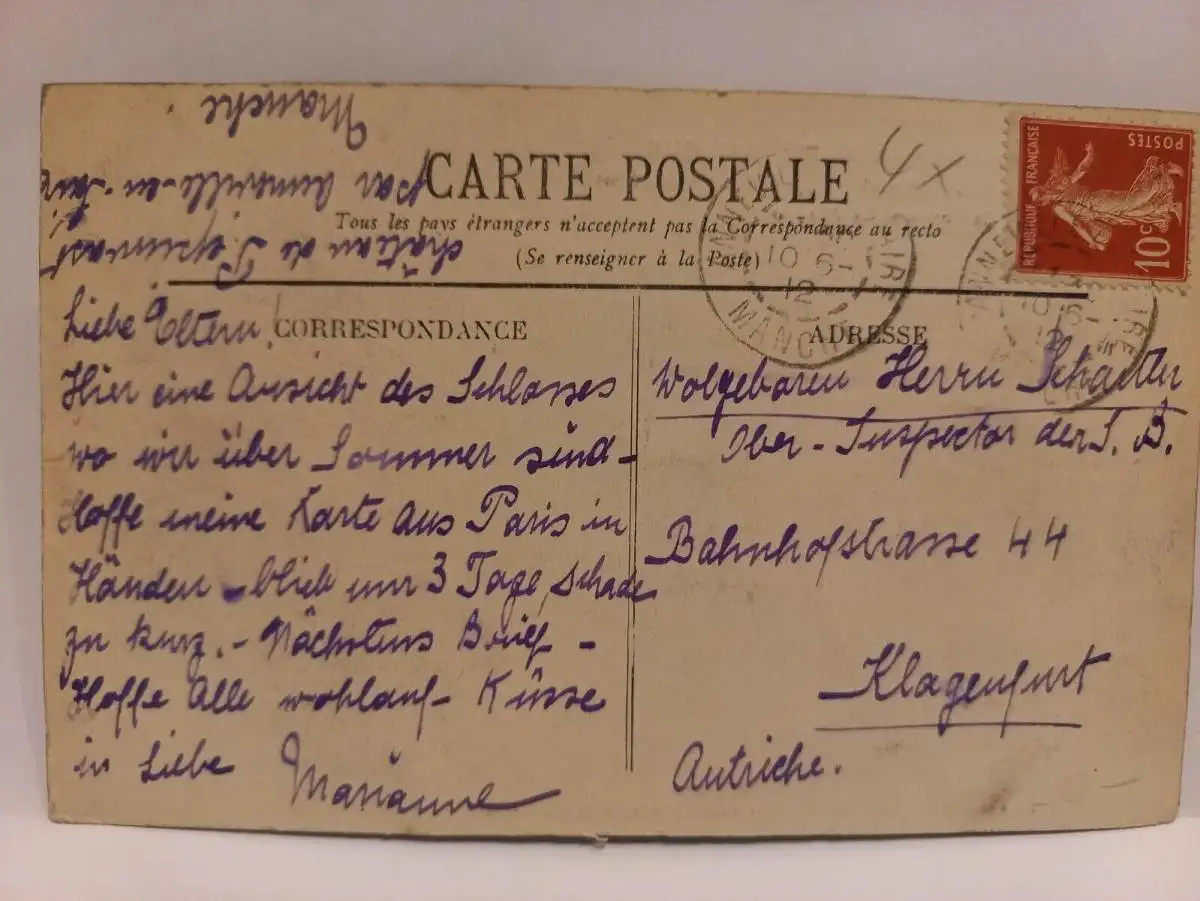 Manche.
par Anneville-en-Saire
château de Pépinvast
CARTE POSTALE
4x
Tous les pays étrangers n'acceptent pas la Correspondance au recto
(Se renseigner à la Poste)
REPUBLIQUE FRANÇAISE
POSTES
10c
10 6-
12
MANCHE
CORRESPONDANCE
Liebe Eltern!
Hier eine Ansicht des Schlosses
wo wir über Sommer sind-
Hoffe meine Karte aus Paris in
Händen - blieb nur 3 Tage, schade
zu kurz. - Nächstens Brief -
Hoffe Alle wohlauf- Küsse
in Liebe
Marianne
ADRESSE
Wolgeboren Herrn
Ober-Inspector der S. B.
Bahnhofstrasse 44
Klagenfurt
Autriche.